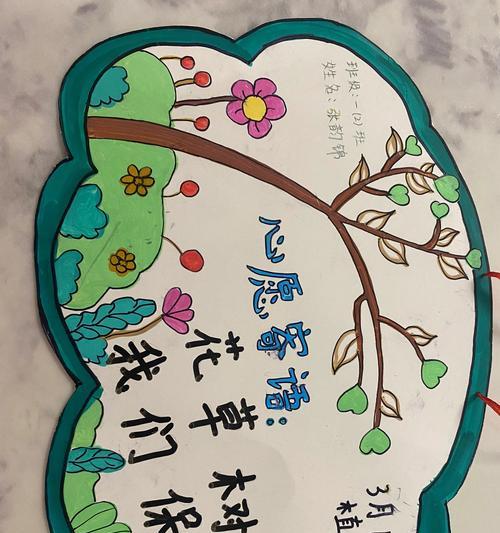 班级:一(2)班
姓名:张韵锦
3月
植
心愿寄语:
花草树
我们保